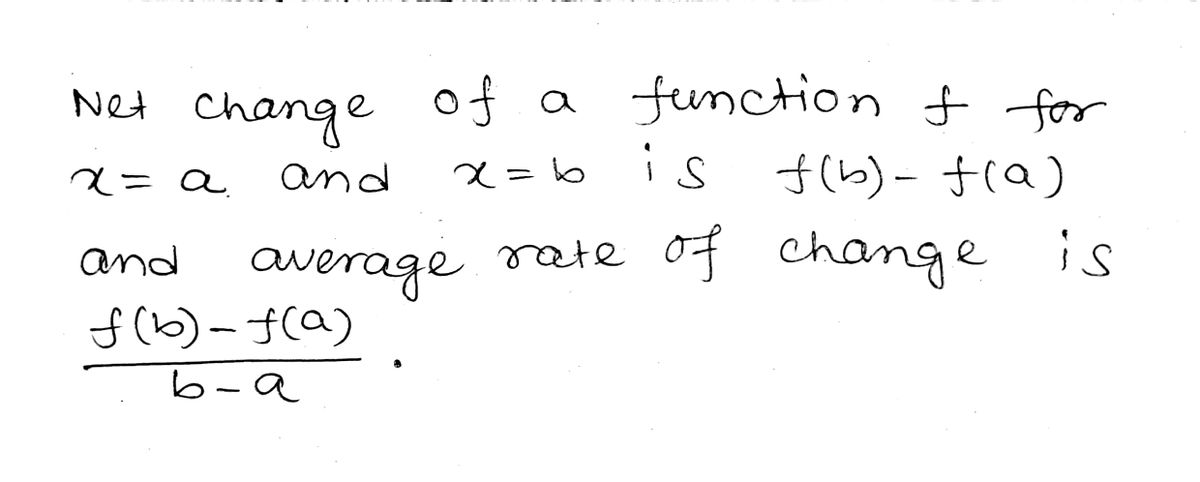 Net change of a function f for
x = a and x = b is f(b) - f(a)
and average rate of change is
f(b) - f(a)
b - a .